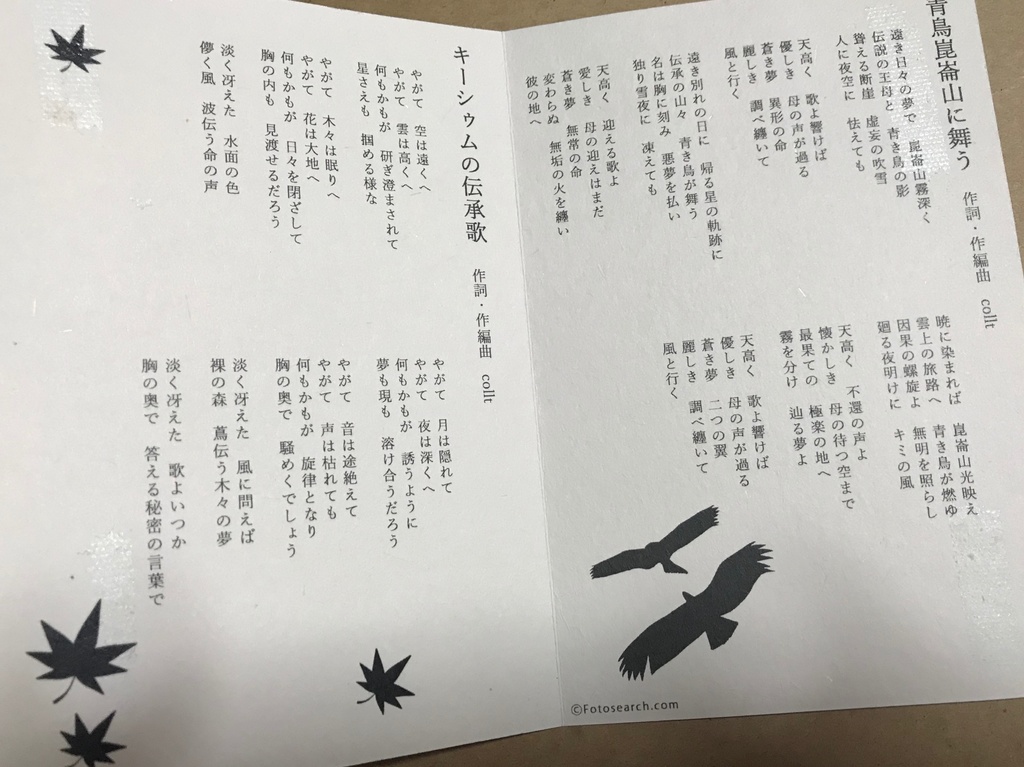 青鳥崑崙山に舞う
作詞・作編曲 collt
遠き日々の夢で 崑崙山霧深く
伝説の王母と 青き鳥の影
聳える断崖 虚妄の吹雪
人に夜空に 怯えても
天高く 歌よ響けば
優しき 母の声が過る
蒼き夢 異形の命
麗しき 調べ纏いて
風と行く
遠き別れの日に 帰る星の軌跡に
伝承の山々 青き鳥が舞う
名は胸に刻み 悪夢を払い
独り雪夜に 凍えても
天高く 迎える歌よ
愛しき 母の迎えはまだ
蒼き夢 無常の命
変わらぬ 無垢の火を纏い
彼の地へ
暁に染まれば 崑崙山光映え
雲上の旅路へ 青き鳥が燃ゆ
因果の螺旋よ 無明を照らし
廻る夜明けに キミの風
天高く 不還の声よ
懐かしき 母の待つ空まで
最果ての 極楽の地へ
霧を分け 辿る夢よ
天高く 歌よ響けば
優しき 母の声が過る
蒼き夢 二つの翼
麗しき 調べ纏いて
風と行く
©Fotosearch.com
キーシゥムの伝承歌
作詞・作編曲 collt
やがて 空は遠くへ
やがて 雲は高くへ
何もかもが 研ぎ澄まされて
星さえも 掴める様な
やがて 木々は眠りへ
やがて 花は大地へ
何もかもが 日々を閉ざして
胸の内も 見渡せるだろう
淡く冴えた 水面の色
儚く風 波伝う命の声
やがて 月は隠れて
やがて 夜は深くへ
何もかもが 誘うように
夢も現も 溶け合うだろう
やがて 音は途絶えて
やがて 声は枯れても
何もかもが 旋律となり
胸の奥で 騒めくでしょう
淡く冴えた 風に問えば
裸の森 蔦伝う木々の夢
淡く冴えた 歌よいつか
胸の奥で 答える秘密の言葉で